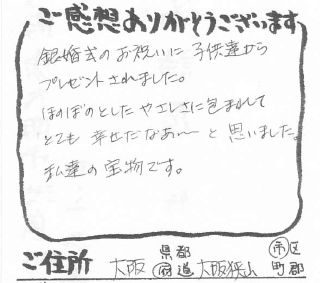 ご感想ありがとうございます
銀婚式のお祝いに子供達から
プレゼントされました。
ほのぼのとしたやさしさに包まれて
とても幸せだなあ〜と思いました。
私達の宝物です。
ご住所 大阪 県都府道 大阪狭山 市区町郡